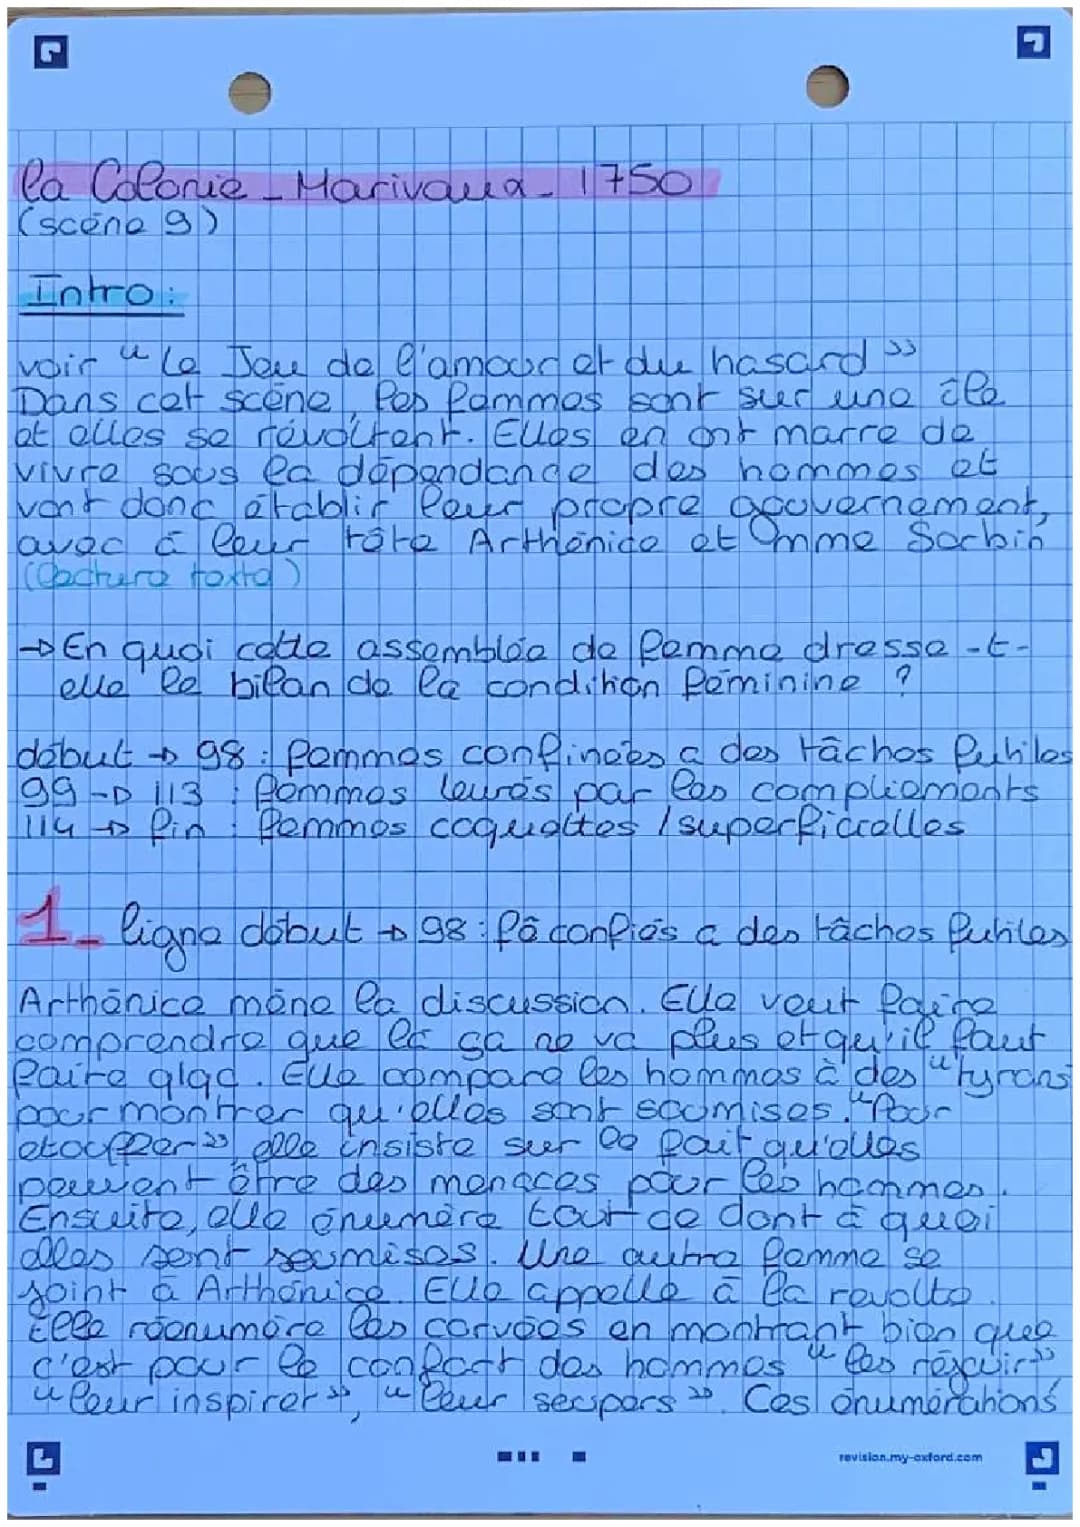 la Colonie - Marivaux - 1750
(scène 9)
Intro :
voir "Le Jeu de l'amour et du hasard"
Dans cet scène, les femmes sont sur une île
et elles se révoltent. Elles en ont marre de
vivre sous la dépendance des hommes et
vont donc établir leur propre gouvernement,
avec à leur tête Arthénice et Mme Sorbin
(lecture texte)
→ En quoi cette assemblée de femme dresse-t-
elle le bilan de la condition féminine ?
début → 98 : femmes confinées a des tâches futiles
99 → 113 : femmes leurés par les compliements
114 → fin : femmes coquettes / superficielles
1_ ligne début → 98 : fê confiés a des tâches futiles
Arthénice mène la discussion. Elle veut faire
comprendre que là ça ne va plus et qu'il faut
faire qlqc. Elle compare les hommes à des "tyrans"
pour montrer qu'elles sont soumises. "Pour
étouffer", elle insiste sur le fait qu'elles
peuvent être des menaces pour les hommes.
Ensuite, elle énumère tout ce dont à quoi
elles sont soumises. Une autre femme se
joint à Arthénice. Elle appelle à la révolte.
Elle réenumère les corvées en montrant bien que
c'est pour le confort des hommes "les réjouir"
"leur inspirer", "leur soupers". Ces énumérations
revision.my-oxford.com